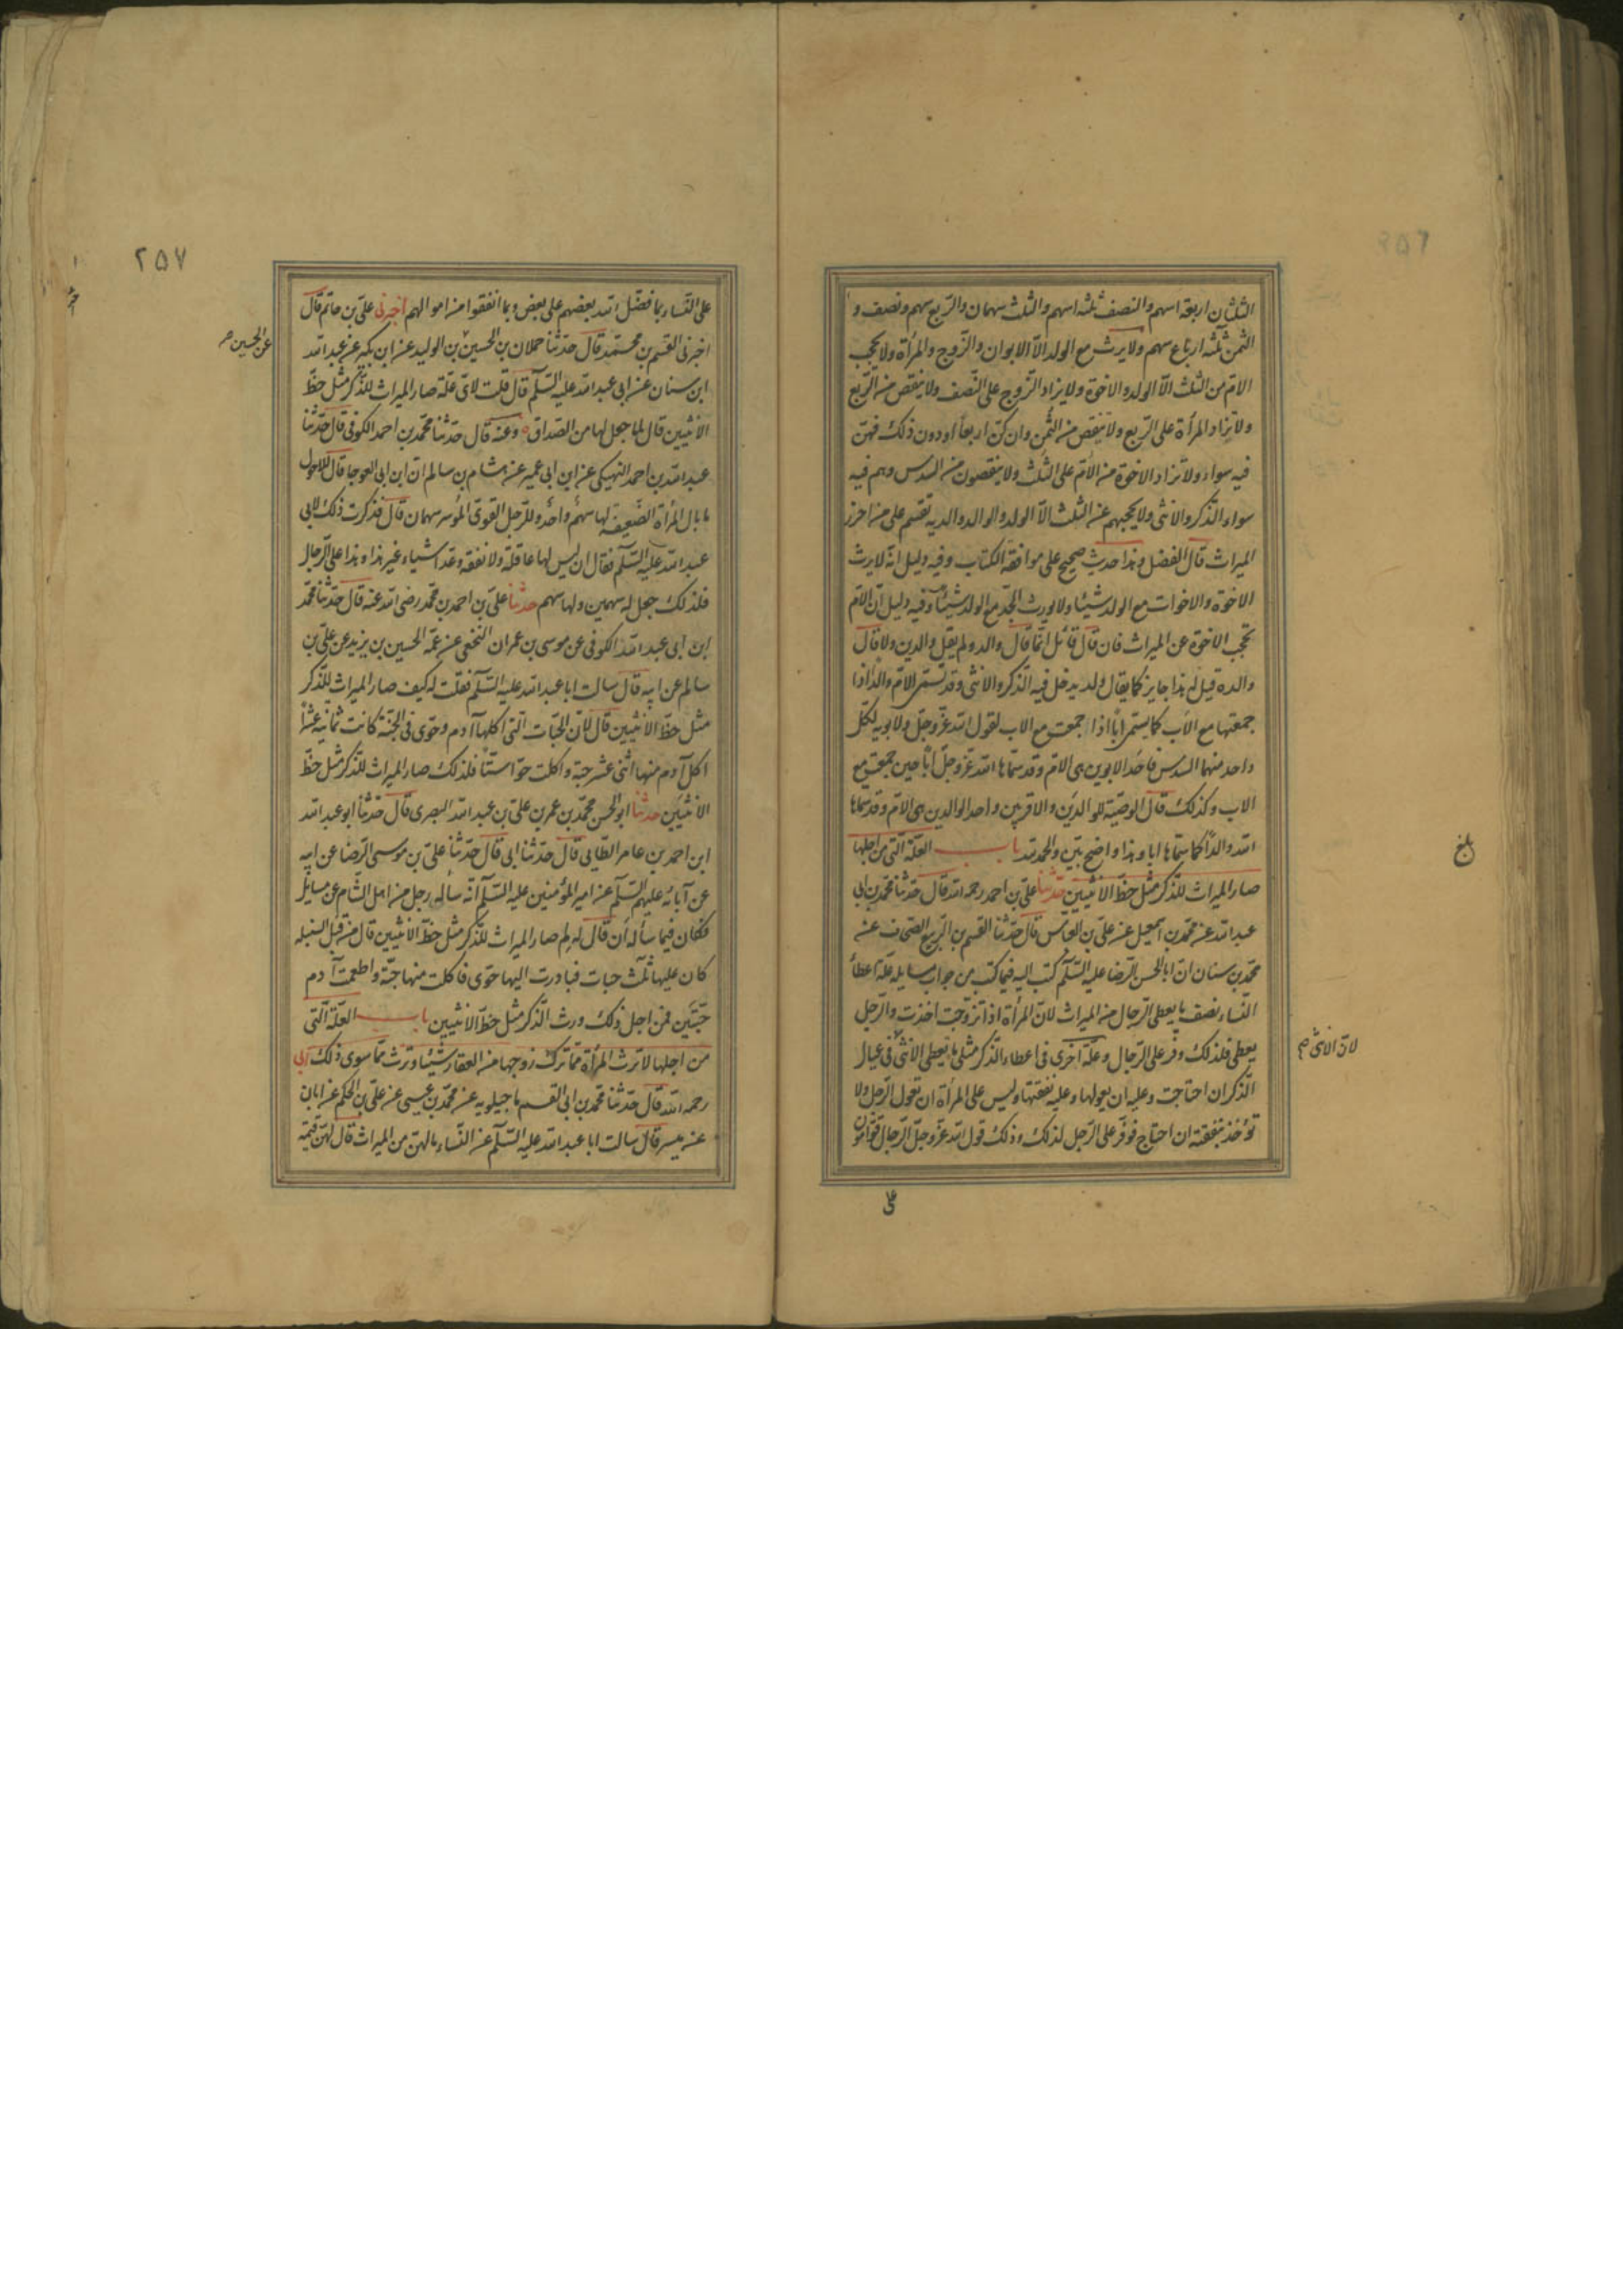 ٢٥٦
الثلثان اربعة اسهم والنصف ثلثة اسهم والثلث سهمان والربع سهم ونصف و
الثمن ثلثة ارباع سهم ولا يرث مع الولد الّا الابوان والزّوج والمرأة ولا يحجب
الامّ من الثلث الّا الولد والاخوة ولا يزاد الزّوج على النّصف ولا ينقص من الرّبع
ولا تزاد المرأة على الرّبع ولا تنقص من الثّمن وان كنّ اربعاً او دون ذلك فهنّ
فيه سواء ولا تزاد الاخوة من الامّ على الثّلث ولا ينقصون من السدس وهم فيه
سواء الذّكر والانثى ولا يحجبهم عن الثلث الّا الولد والوالد والدية تقسم على من احرز
الميراث قال الفضل وهذا حديث صحيح على موافقة الكتاب وفيه دليل انّه لا يرث
الاخوة والاخوات مع الولد شيئا ولا يورث الجدّ مع الولد شيئا وفيه دليل انّ الامّ
تحجب الاخوة عن الميراث فان قال قائل انّما قال والد ولم يقل والدين ولا قال
والدة قيل له هذا جايز كما يقال ولد يدخل فيه الذّكر والانثى وقد تسمّى الامّ والداً اذا
جمعتها مع الاب كما يسمّى اباً اذا اجتمعت مع الاب لقول الله عزّ وجلّ ولابويه لكلّ
واحد منهما السدس فاحد الابوين هى الامّ وقد سمّاها الله عزّ وجلّ اباً حين جمعت مع
الاب وكذلك قال الوصيّة للوالدين والاقربين واحد الوالدين هى الامّ وقد سمّاها
الله والداً كما سمّاها ابا وهذا واضح بيّن والحمد لله باب العلّة الّتى من اجلها
صار الميراث للذّكر مثل حظّ الانثيين حدّثنا علىّ بن احمد رحمه الله قال حدّثنا محمّد بن ابى
عبد الله عن محمّد بن اسمعيل عن علىّ بن العباس قال حدّثنا القسم بن الرّبيع الصحّاف عن
محمّد بن سنان انّ ابا الحسن الرّضا عليه السّلم كتب اليه فيما كتب من جواب مسايله علّة اعطاء
النّساء نصف ما يعطى الرّجال من الميراث لانّ المرأة اذا تزوّجت اخذت والرّجل
يعطى فلذلك وفّر على الرّجال وعلّة اخرى فى اعطاء الذّكر مثلى ما يعطى الانثى فى عيال
الذّكر ان احتاجت وعليه ان يعولها وعليه نفقتها وليس على المرأة ان تعول الرّجل ولا
تؤخذ بنفقته ان احتاج فوفّر على الرّجل لذلك وذلك قول الله عزّ وجلّ الرّجال قوّامون
على
بلغ
لانّ الانثى صح
٢٥٧
على النّساء بما فضّل الله بعضهم على بعض وبما انفقوا من اموالهم اخبرنى علىّ بن حاتم قال
اخبرنى القسم بن محمّد قال حدّثنا حمدان بن الحسين بن الوليد عن ابن بكير عن عبد الله
ابن سنان عن ابى عبد الله عليه السّلم قال قلت لاىّ علّة صار الميراث للذّكر مثل حظّ
الانثيين قال لما جعل لها من الصّداق وعنه قال حدّثنا محمّد بن احمد الكوفى قال حدّثنا
عبد الله بن احمد النهيكى عن ابن ابى عمير عن هشام بن سالم انّ ابن ابى العوجا قال للاحول
ما بال المرأة الضّعيفة لها سهم واحد وللرّجل القوىّ الموسر سهمان قال فذكرت ذلك لابى
عبد الله عليه السّلم فقال ان ليس لها عاقلة ولا نفقة وعدّ اشياء غير هذا وهذا على الرّجال
فلذلك جعل له سهمين ولها سهم حدّثنا علىّ بن احمد بن محمّد رضى الله عنه قال حدّثنا محمّد
ابن ابى عبد الله الكوفى عن موسى بن عمران النخعى عن عمّه الحسين بن يزيد عن علىّ بن
سالم عن ابيه قال سالت ابا عبد الله عليه السّلم فقلت له كيف صار الميراث للذّكر
مثل حظّ الانثيين قال لانّ الحبّات الّتى اكلها آدم وحوّى فى الجنّة كانت ثمانية عشراً
اكل آدم منها اثنى عشر حبّة واكلت حوّا ستّا فلذلك صار الميراث للذّكر مثل حظّ
الانثيين حدثنا ابو الحسن محمّد بن عمر بن علىّ بن عبد الله البصرى قال حدّثنا ابو عبد الله
ابن احمد بن عامر الطّايى قال حدّثنا ابى قال حدّثنا علىّ بن موسى الرّضا عن ابيه
عن آبائه عليهم السّلم عن امير المؤمنين عليه السّلم انّه سأله رجل من اهل الشّام عن مسايل
فكان فيما سأله أن قال له لم صار الميراث للذّكر مثل حظّ الانثيين قال من قبل السنبلة
كان عليها ثلث حبات فبادرت اليها حوّى فاكلت منها حبّة واطعمت آدم
حبّتين فمن اجل ذلك ورث الذّكر مثل حظّ الانثيين باب العلّة الّتى
من اجلها لا ترث المرأة ممّا ترك زوجها من العقار شيئا وترث ممّا سوى ذلك ابى
رحمه الله قال حدّثنا محمّد بن ابى القسم ماجيلويه عن محمّد بن عيسى عن علىّ بن الحكم عن ابان
عن ميسر قال سالت ابا عبد الله عليه السّلم عن النّساء ما لهنّ من الميراث قال لهنّ قيمة
عن الحسين صح